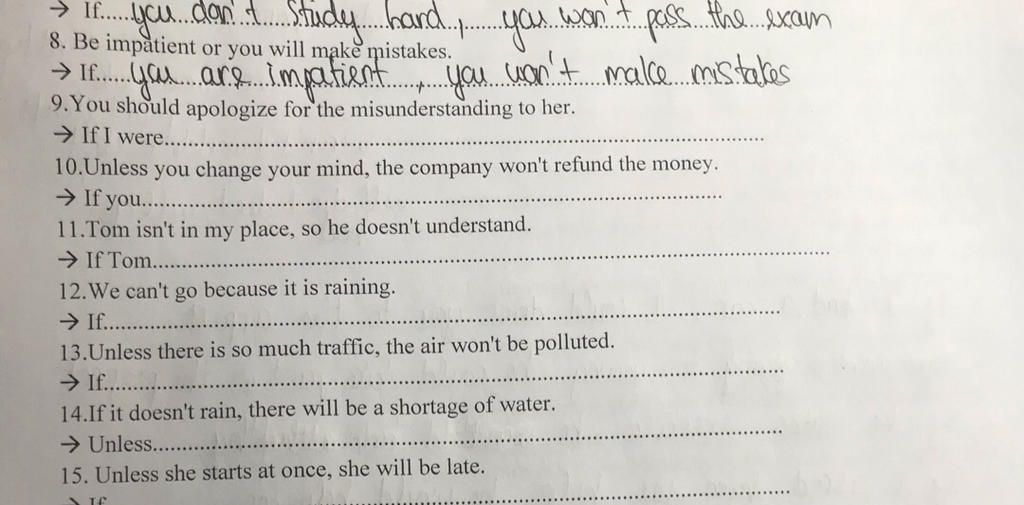 → If......you don't study hard, you won't pass the exam
8. Be impatient or you will make mistakes.
→ If......you are impatient, you won't make mistakes
9.You should apologize for the misunderstanding to her.
→ If I were...........................................................
10.Unless you change your mind, the company won't refund the money.
→ If you...........................................................
11.Tom isn't in my place, so he doesn't understand.
→ If Tom...........................................................
12.We can't go because it is raining.
→ If...........................................................
13.Unless there is so much traffic, the air won't be polluted.
→ If...........................................................
14.If it doesn't rain, there will be a shortage of water.
→ Unless...........................................................
15. Unless she starts at once, she will be late.
→ If...........................................................